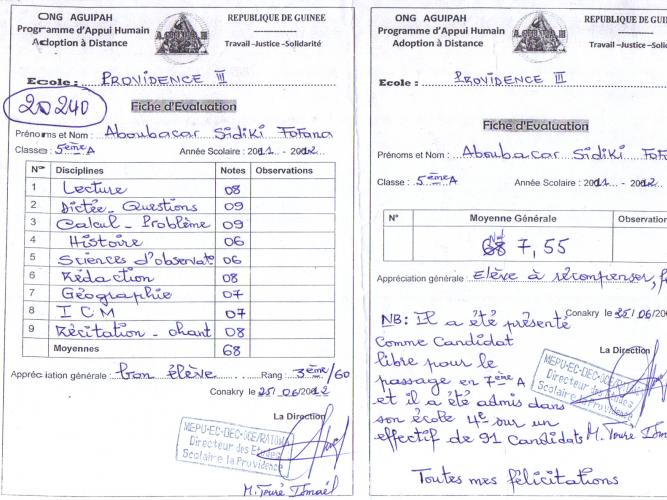 ONG AGUIPAH
Programme d'Appui Humain
Adoption à Distance
REPUBLIQUE DE GUINEE
Travail -Justice -Solidarité
Ecole : PROVIDENCE III
20240
Fiche d'Evaluation
Prénoms et Nom : Aboubacar Sidiki Fofana
Classe : 5ème A Année Scolaire : 2011 - 2012
N° Disciplines Notes Observations
1 Lecture 08
2 Dictée - Questions 09
3 Calcul - Problème 09
4 Histoire 06
5 Sciences d'observat 06
6 Rédaction 08
7 Géographie 07
8 I C M 07
9 Récitation - chant 08
Moyennes 68
Appréciation générale : bon élève Rang : 3ème/60
Conakry le 25/06/2012
La Direction
MEPU-EC-DEC-DCE/RATOMA
Directeur des Etudes
Scolaire la Providence
M. Touré Ismaël
ONG AGUIPAH
Programme d'Appui Humain
Adoption à Distance
REPUBLIQUE DE GUI
Travail -Justice -Solid
Ecole : PROVIDENCE III
Fiche d'Evaluation
Prénoms et Nom : Aboubacar Sidiki Fofa
Classe : 5ème A Année Scolaire : 2011 - 2012
N° Moyenne Générale Observation
7,55
Appréciation générale : Elève à récompenser,
Conakry le 25/06/20
NB: Il a été présenté
comme Candidat
libre pour le
passage en 7ème A
et il a été admis dans
son école 4e sur un
effectif de 91 Candidats
La Direction
MEPU-EC-DEC-DCE/RATOMA
Directeur des Etudes
Scolaire la Providence
M. Touré Isma
Toutes mes félicitations